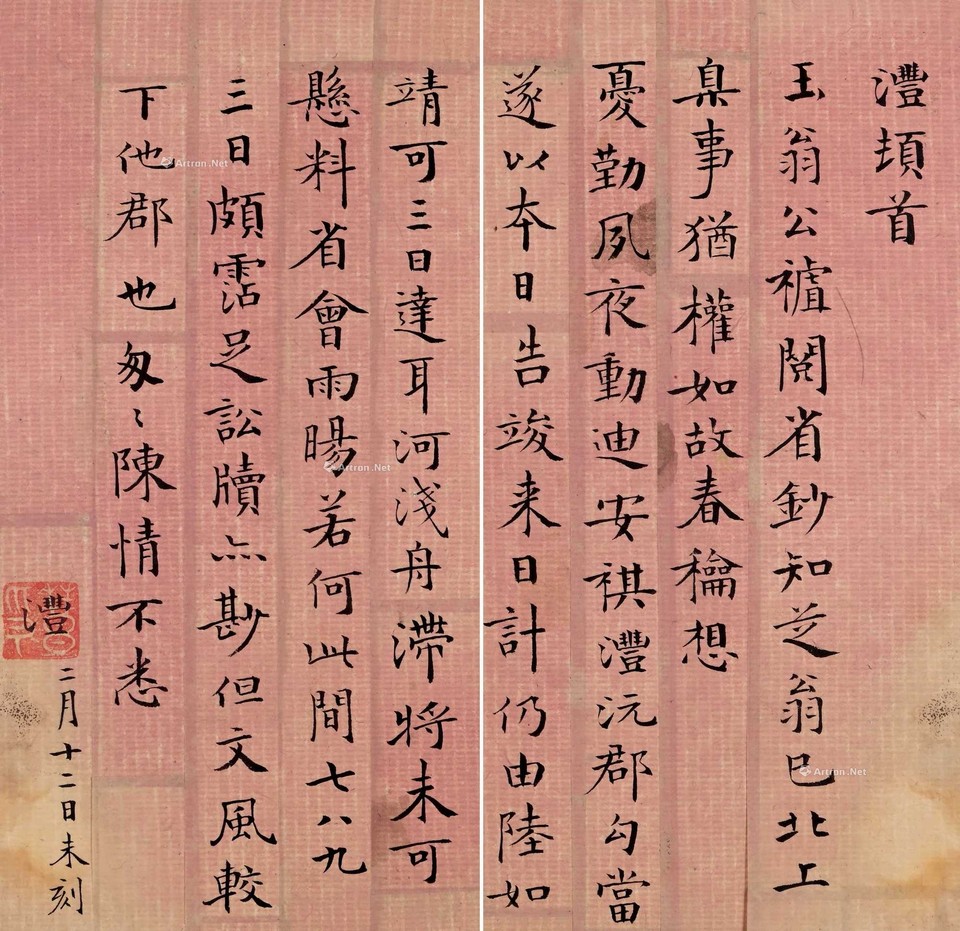 灃頓首
玉翁公閱省鈔知芝翁已北上
臬事猶權如故春龢想
憂勤夙夜動迪安祺灃沅郡勾當
遂以本日告竣来日計仍由陸如
靖可三日達耳河淺舟滯將未可
懸料省會雨暘若何此間七八九
三日頗霑足訟牘亦尟但文風較
下他郡也匆〻陳情不悉
灃 二月十二日未刻
Artron.Net
Artron.Net
Artron.Net